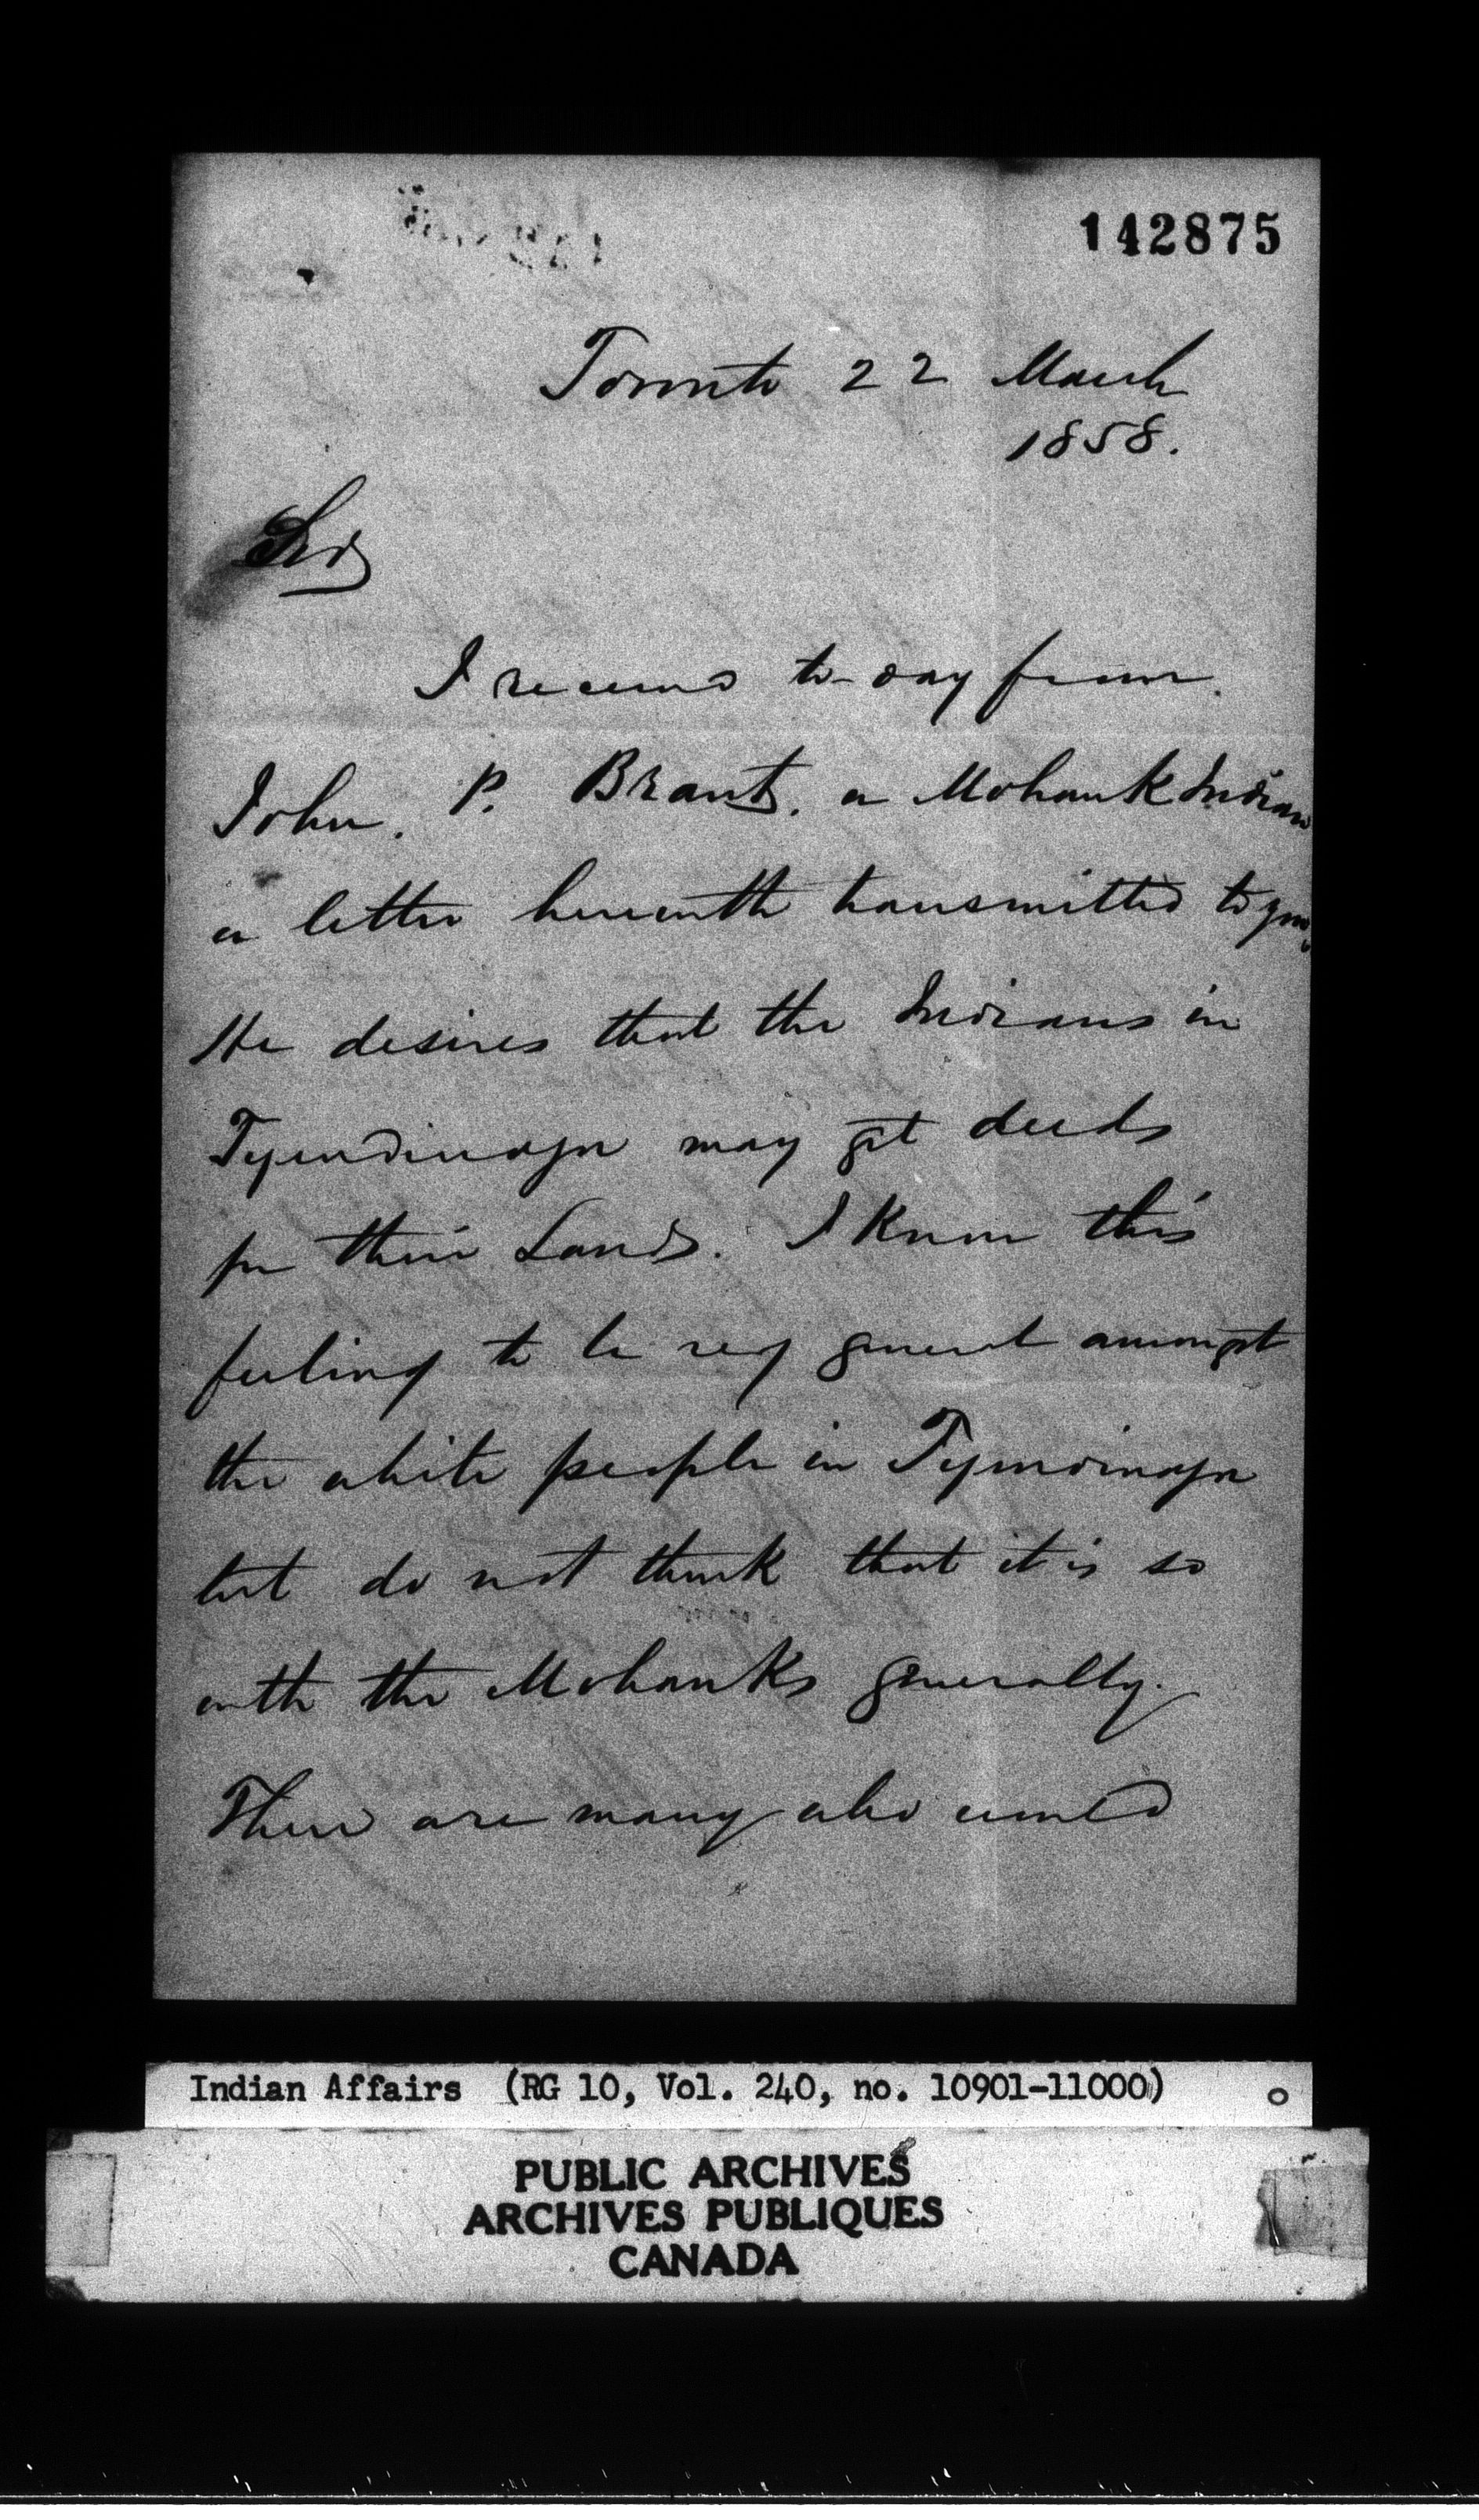 142875
Toronto 22 March
1858.
Sir
I received to-day from
John. P. Brant. a Mohawk Indian
a letter herewith transmitted to you.
He desires that the Indians in
Tyendinaga may get deeds
for their Lands. I know this
feeling to be very general amongst
the white people in Tyendinaga
but do not think that it is so
with the Mohawks generally.
There are many who would
Indian Affairs (RG 10, Vol. 240, no. 10901-11000)
PUBLIC ARCHIVES
ARCHIVES PUBLIQUES
CANADA